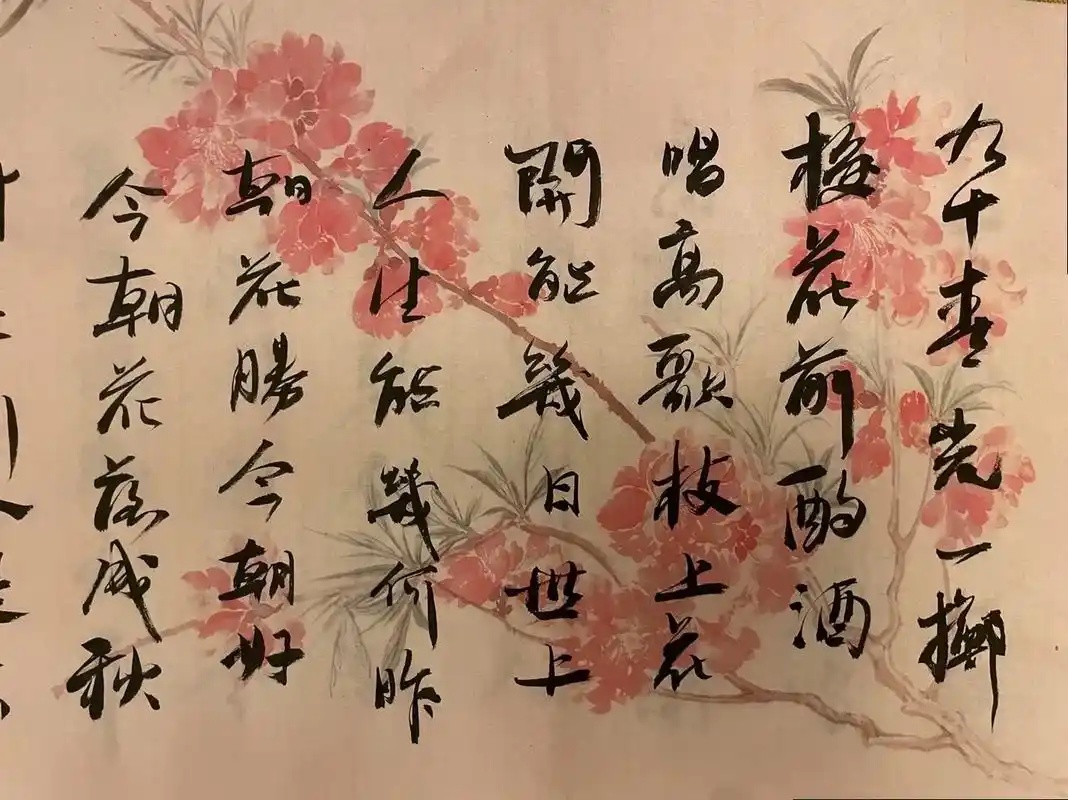 九十春光一擲
梭花前酌酒
唱高歌枝上花
開能幾日世上
人生能幾何昨
朝花勝今朝好
今朝花落成秋